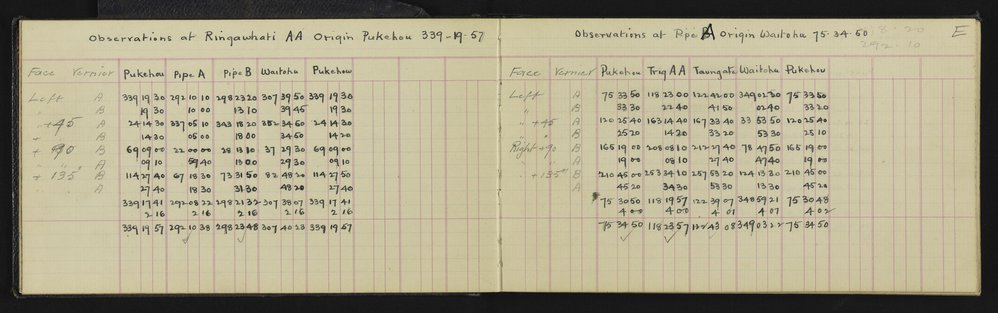 Observations at Ringawhati AA Origin Pukehou 339-19-57
Face Vernier Pukehou Pipe A Pipe B Waitohu Pukehou
Left A 339 19 30 292 10 10 298 23 20 307 39 50 339 19 30
B 19 30 10 00 13 10 39 45 19 30
" +45 A 24 14 30 337 05 10 343 18 20 352 34 50 24 14 30
" B 14 30 05 00 18 00 34 50 14 20
+ 90 B 69 09 00 22 00 00 28 13 10 37 29 30 69 09 00
" " A 09 10 59 40 13 00 29 30 09 10
+ 135° B 114 27 40 67 18 30 73 31 50 82 48 20 114 27 50
" A 27 40 18 30 31 30 48 20 27 40
339 17 41 292 08 22 298 21 32 307 38 07 339 17 41
2 16 2 16 2 16 2 16
339 19 57 292 10 38 298 23 48 307 40 23 339 19 57
Observations at Pipe A Origin Waitohu 75-34-50 E
292-10
Face Vernier Pukehou Trig AA Taungata Waitohu Pukehou
Left A 75 33 50 118 23 00 122 42 00 349 02 30 75 33 50
" B 33 30 22 40 41 50 02 40 33 20
" +45 A 120 25 40 163 14 40 167 33 40 33 53 50 120 25 40
" B 25 20 14 30 33 20 53 30 25 10
Right +90 B 165 19 00 208 08 10 212 27 40 78 47 50 165 19 00
" A 19 00 08 10 27 40 47 40 19 00
" +135° B 210 45 00 253 34 10 257 53 20 124 13 30 210 45 00
A 45 20 34 30 53 30 13 30 45 20
75 30 50 118 19 57 122 39 07 348 59 21 75 30 48
4 00 4 00 4 01 4 01 4 02
75 34 50 118 23 57 122 43 08 349 03 22 75 34 50